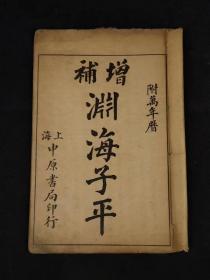 增補
淵海子平
附萬年曆
上海
中原書局印行